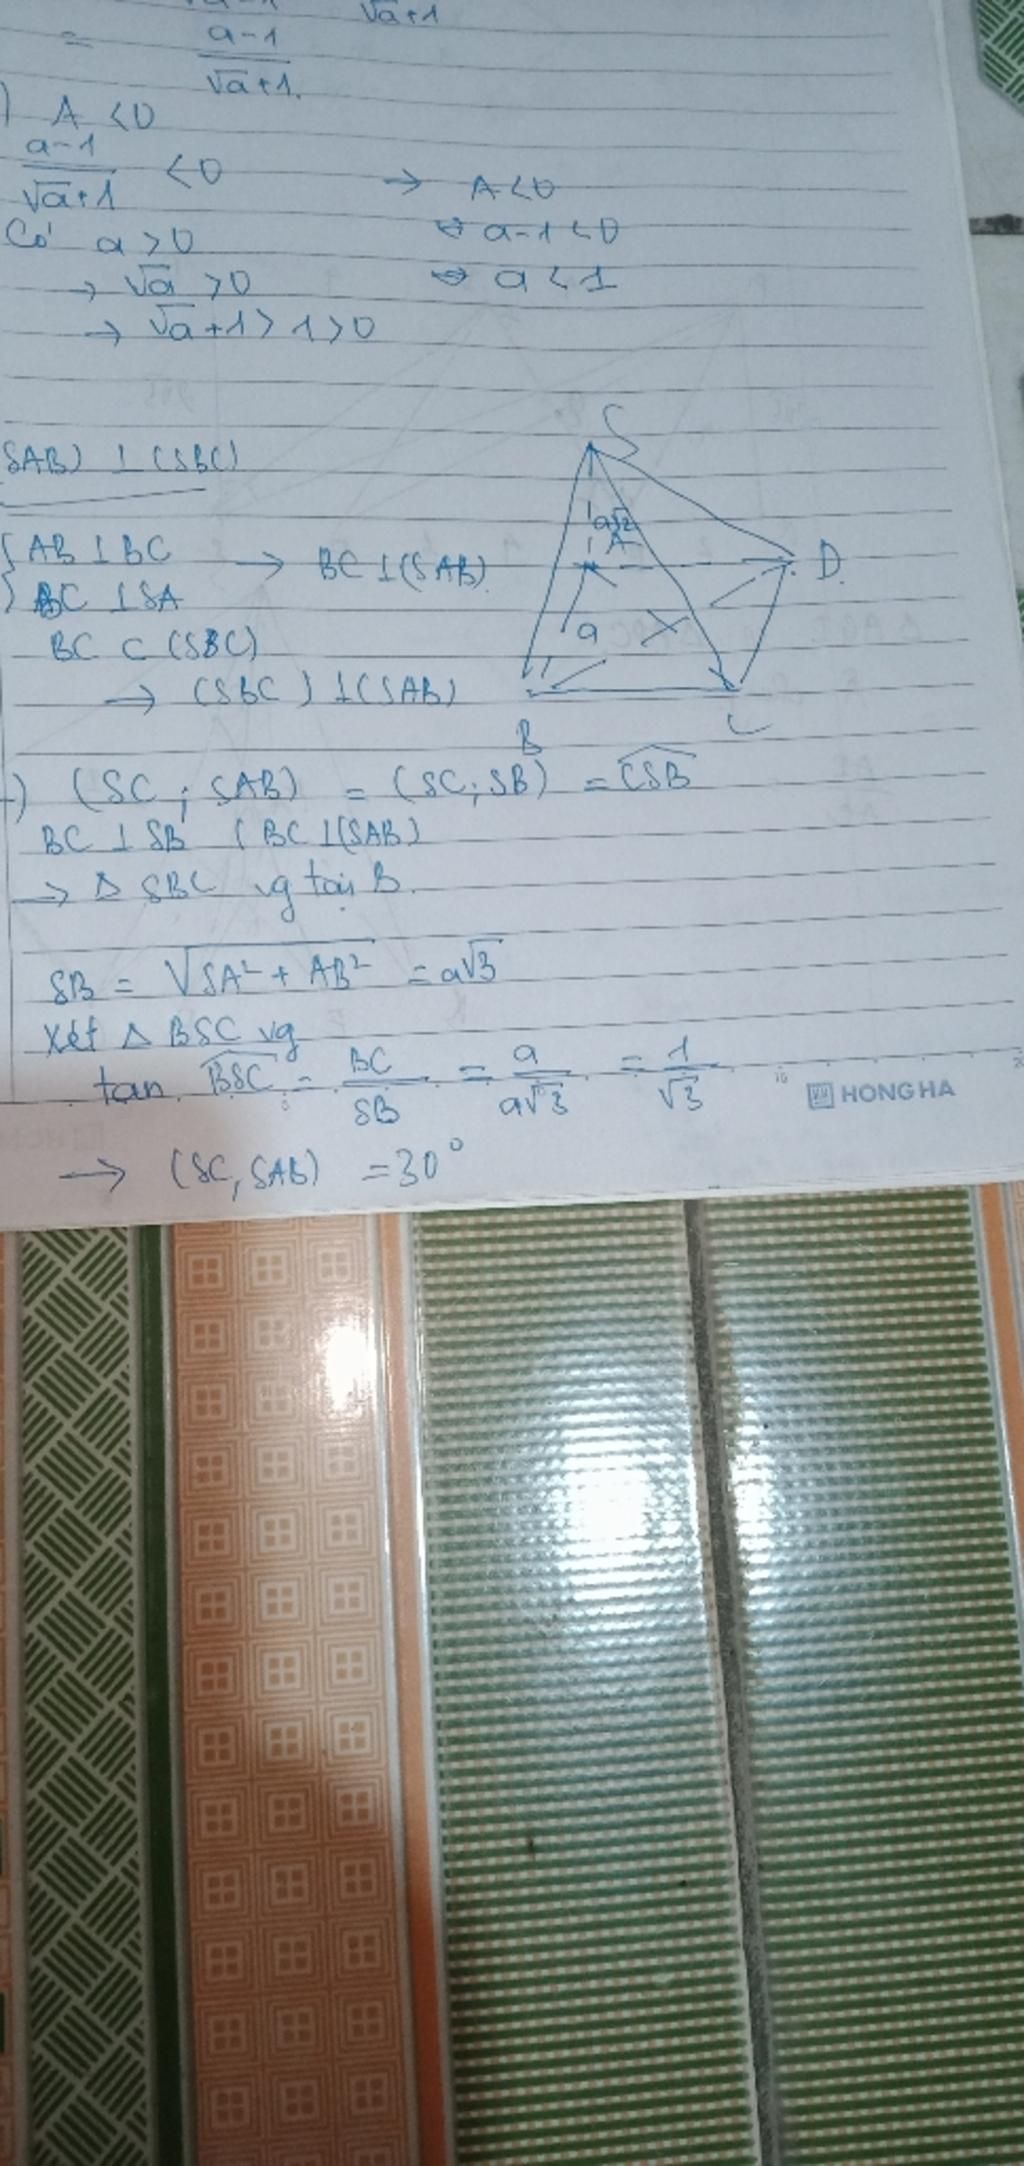 √a+1
= a-1 / √a+1.
) A <0
a-1 / √a+1 <0 → A<0
Có a >0 ⇔ a-1 <0
→ √a >0 ⇔ a < 1
→ √a +1 > 1 >0
S
SAB) ⊥ (SBC)
a√2
{ AB ⊥ BC → BC ⊥ (SAB) A D.
BC ⊥ SA
a
BC ⊂ (SBC)
→ (SBC) ⊥ (SAB)
B C
) (SC ; SAB) = (SC; SB) = \widehat{CSB}
BC ⊥ SB ( BC ⊥ (SAB)
→ Δ SBC vg tại B.
SB = √SA² + AB² = a√3
Xét Δ BSC vg
tan \widehat{BSC} = BC / SB = a / a√3 = 1 / √3
HONG HA
→ (SC, SAB) = 30°